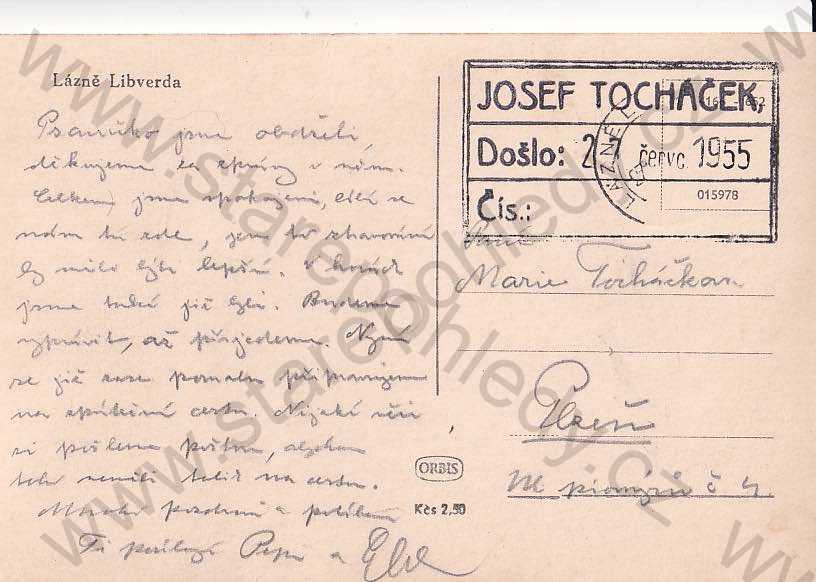 Lázně Libverda
Psaníčko jsme obdrželi
děkujeme za zprávy v něm.
Celkem jsme spokojeni, líbí se
nám tu zde, jen to stravování
by mělo býti lepší. V horách
jsme také již byli. Budeme
vyprávět, až přijedeme. Nyní
se již zase pomalu připravujeme
na zpáteční cestu. Nějaké věci
si pošleme poštou, abychom
toho neměli tolik na cestu.
Mnoho pozdravů a políbení
Ti posílají Pepa a
JOSEF TOCHÁČEK,
Došlo: 27 červc 1955
Čís.:
LÁZNĚ L
015978
Paní
Marie Tocháčková
Plzeň
Ul. pionýrů č 4
ORBIS
Kčs 2,50
www.starepohledy.cz
www.starepohledy.cz